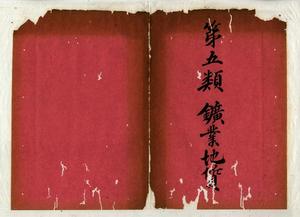 第五類 鑛業地質